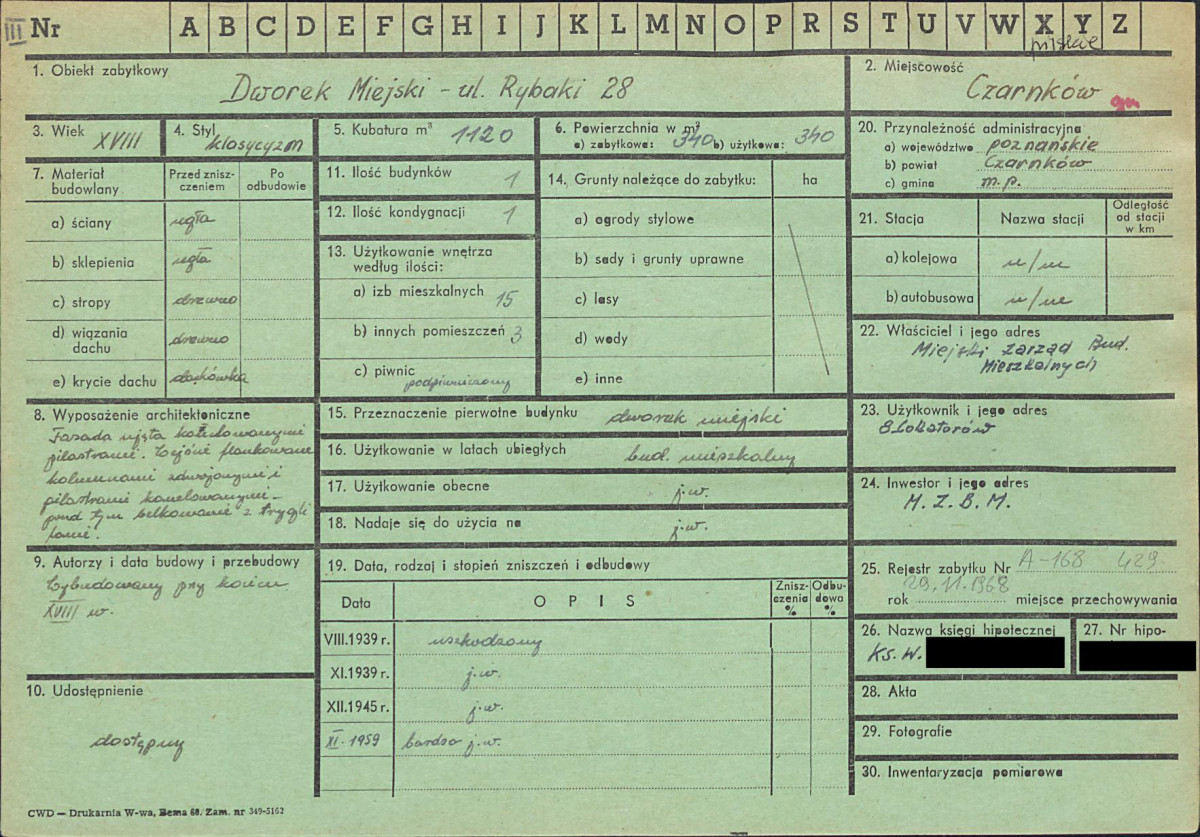 III Nr A B C D E F G H I J K L M N O P R S T U V W X Y Z
pilskie
1. Obiekt zabytkowy
Dworek Miejski - ul. Rybaki 28
2. Miejscowość
Czarnków gm
3. Wiek XVIII
4. Styl klasycyzm
5. Kubatura m³ 1120
6. Powierzchnia w m²
a) zabytkowa: 340 b) użytkowa: 340
7. Materiał budowlany
Przed zniszczeniem
Po odbudowie
a) ściany cegła
b) sklepienia cegła
c) stropy drzewo
d) wiązania dachu drzewo
e) krycie dachu dachówka
8. Wyposażenie architektoniczne
Fasada ujęta kanelowanymi
pilastrami. Wejście flankowane
kolumnami zdwojonymi i
pilastrami kanelowanymi -
ponad tym belkowanie z trygli
fami.
9. Autorzy i data budowy i przebudowy
Wybudowany przy końcu
XVIII w.
10. Udostępnienie
dostępny
11. Ilość budynków 1
12. Ilość kondygnacji 1
13. Użytkowanie wnętrza
według ilości:
a) izb mieszkalnych 15
b) innych pomieszczeń 3
c) piwnic podpiwniczony
14. Grunty należące do zabytku: ha
a) ogrody stylowe
b) sady i grunty uprawne
c) lasy
d) wody
e) inne
15. Przeznaczenie pierwotne budynku dworek miejski
16. Użytkowanie w latach ubiegłych bud. mieszkalny
17. Użytkowanie obecne j.w.
18. Nadaje się do użycia na j.w.
19. Data, rodzaj i stopień zniszczeń i odbudowy
Data
OPIS
Znisz-
czenia
%
Odbu-
dowa
%
VIII.1939 r. uszkodzony
XI.1939 r. j.w.
XII.1945 r. j.w.
XI-1959 bardzo j.w.
20. Przynależność administracyjna
a) województwo poznańskie
b) powiat Czarnków
c) gmina m.p.
21. Stacja
Nazwa stacji
Odległość
od stacji
w km
a) kolejowa n/m
b) autobusowa n/m
22. Właściciel i jego adres
Miejski zarząd Bud.
Mieszkalnych
23. Użytkownik i jego adres
8 Lokatorów
24. Inwestor i jego adres
M. Z. B. M.
25. Rejestr zabytku Nr A-168 429
29.11.1968
rok miejsce przechowywania
26. Nazwa księgi hipotecznej
Ks. W.
27. Nr hipo-
28. Akta
29. Fotografie
30. Inwentaryzacja pomiarowa
CWD — Drukarnia W-wa, Bema 60. Zam. nr 349-5162